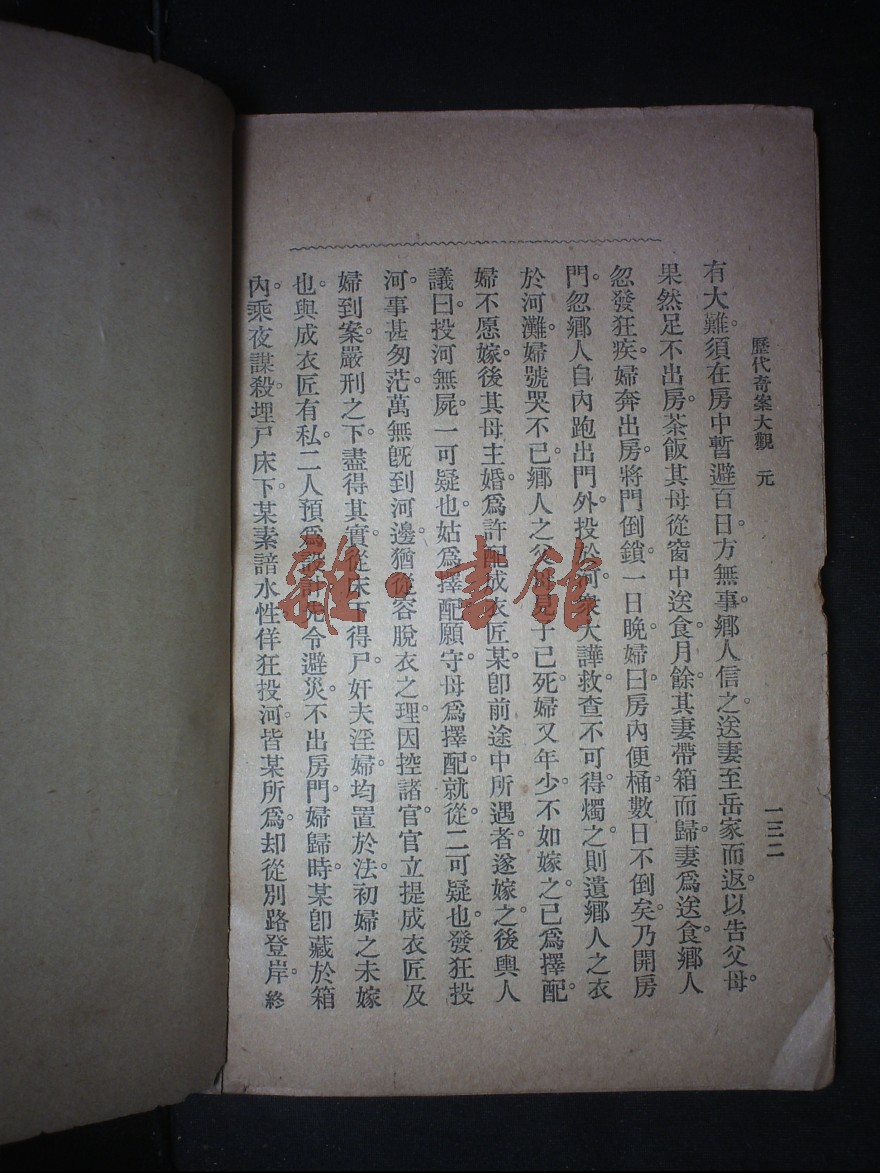 歷代奇案大觀　元　一三二
有大難。須在房中暫避百日。方無事。鄉人信之。送妻至岳家而返。以告父母。
果然足不出房。茶飯其母從窗中送食。月餘。其妻帶箱而歸。妻爲送食。鄉人
忽發狂疾。婦奔出房。將門倒鎖。一日晚。婦曰。房內便桶。數日不倒矣。乃開房
門。忽鄉人自內跑出門外。投於河。衆大譁。救查不可得。燭之。則遺鄉人之衣
於河灘。婦號哭不已。鄉人之父母見子已死。婦又年少。不如嫁之。已爲擇配。
婦不愿嫁。後其母主婚。爲許配成衣匠某。卽前途中所遇者。遂嫁之。後輿人
議曰。投河無屍。一可疑也。姑爲擇配願守。母爲擇配就從。二可疑也。發狂投
河。事甚匆茫。萬無旣到河邊。猶從容脫衣之理。因控諸官。官立提成衣匠及
婦到案。嚴刑之下。盡得其實。從床下得尸。奸夫淫婦。均置於法。初婦之未嫁
也。與成衣匠有私。二人預爲設計。先令避災。不出房門。婦歸時。某卽藏於箱
內。乘夜謀殺。埋尸床下。某素諳水性。佯狂投河。皆某所爲。却從別路登岸。終
雜·書館